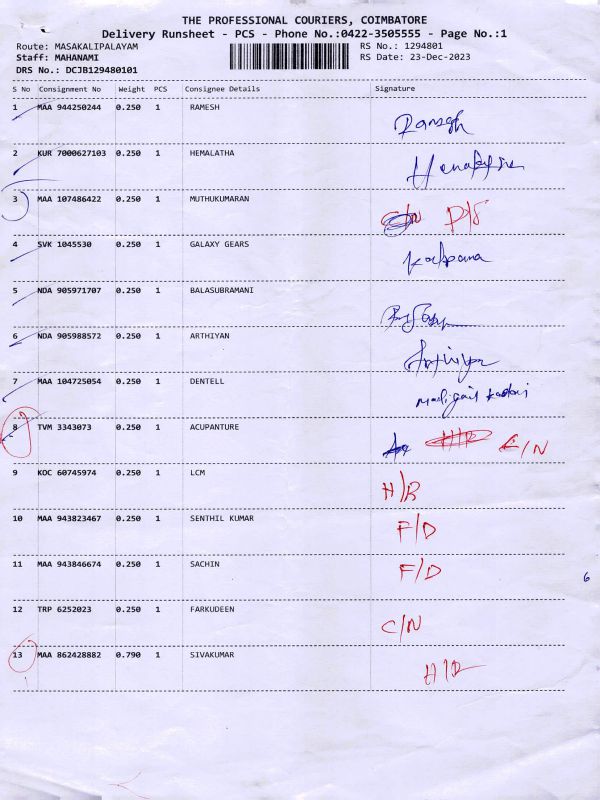 THE PROFESSIONAL COURIERS, COIMBATORE
Delivery Runsheet - PCS - Phone No.:0422-3505555 - Page No.:1
Route: MASAKALIPALAYAM
Staff: MAHANAMI
DRS No.: DCJB129480101
RS No.: 1294801
RS Date: 23-Dec-2023
S No Consignment No Weight PCS Consignee Details Signature
1 MAA 944250244 0.250 1 RAMESH Ramesh
2 KUR 7000627103 0.250 1 HEMALATHA
3 MAA 107486422 0.250 1 MUTHUKUMARAN C/N D/S
4 SVK 1045530 0.250 1 GALAXY GEARS Kalpana
5 NDA 905971707 0.250 1 BALASUBRAMANI
6 NDA 905988572 0.250 1 ARTHIYAN
7 MAA 104725054 0.250 1 DENTELL
8 TVM 3343073 0.250 1 ACUPANTURE C/N
9 KOC 60745974 0.250 1 LCM H/R
10 MAA 943823467 0.250 1 SENTHIL KUMAR F/D
11 MAA 943846674 0.250 1 SACHIN F/D
6
12 TRP 6252023 0.250 1 FARKUDEEN C/N
13 MAA 862428882 0.790 1 SIVAKUMAR H/R